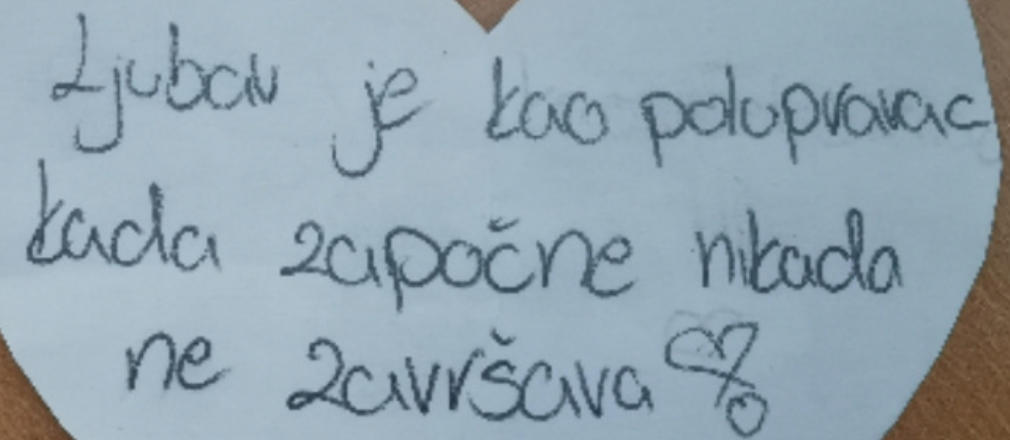 Ljubav je kao polupravac
kada započne nikada
ne završava